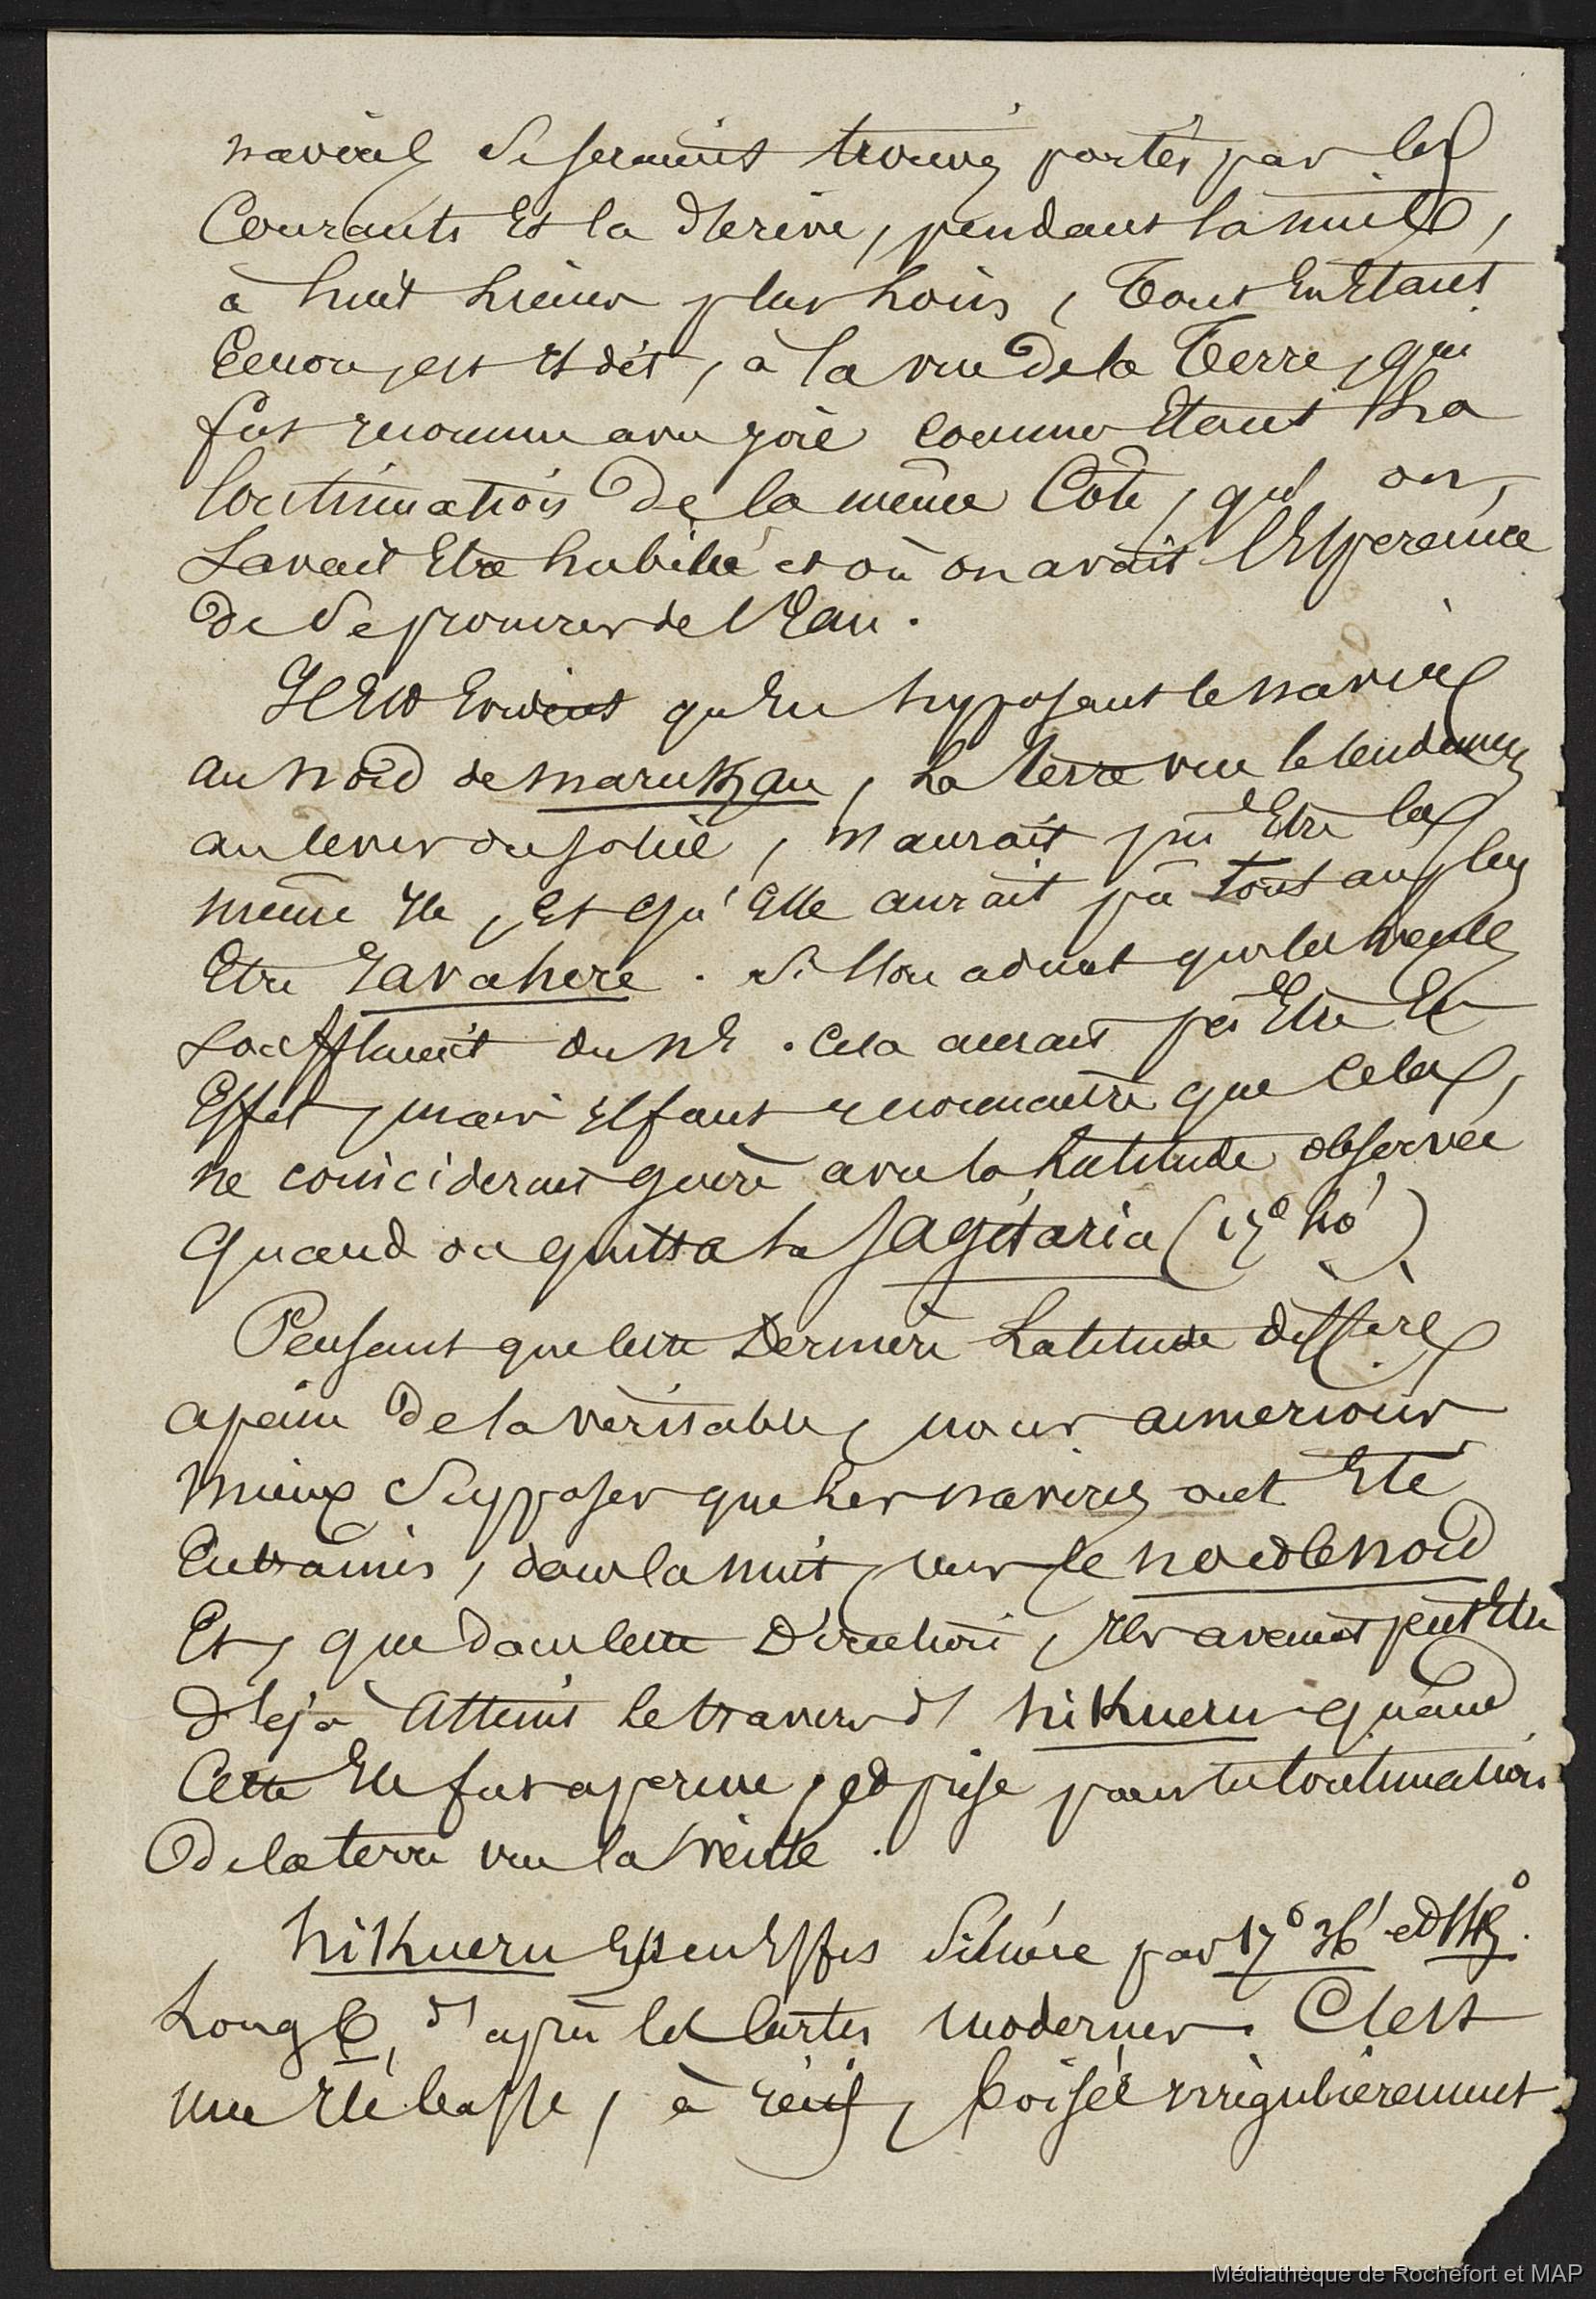 navires se seraient trouvés portés par les
Courants et la dérive, pendant la nuit,
à huit lieues plus loin, tout en étant
Encore, est il dit, à la vue de la Terre, qui
fut reconnue avec joie comme étant la
Continuation de la même Côte, qu'on
savait être habitée et où on avait l'Espérance
de se procurer de l'Eau.
Il Est Evident qu'En supposant le navire
au nord de marutéa, la terre vue le lendemain
au lever du soleil, n'aurait pu Etre la
même Ile, Et qu'Elle aurait pu tout au plus
Etre Ravahere. Si l'on admet que les vents
soufflaient du NE. Cela aurait pu Etre En
Effet, mais il faut reconnaitre que cela,
ne coinciderait guère avec la latitude observée
quand on quitta la Sagitaria (17° 40')
Pensant que cette Dernière Latitude diffère
à peine de la véritable, nous aimerions
mieux supposer que les navires ont Eté
Entrainés, dans la nuit, vers le nord
Et, que dans cette Direction, Ils avaient peut Etre
déjà atteint le travers d' hikueru quand
Cette Ile fut aperçue, et prise pour la Continuation
de la terre vue la veille.
hikueru Est en Effet située par 17° 36' et
Long O, d'après les Cartes modernes. C'est
une Ile basse, à récif, boisée irrégulièrement
Médiathèque de Rochefort et MAP